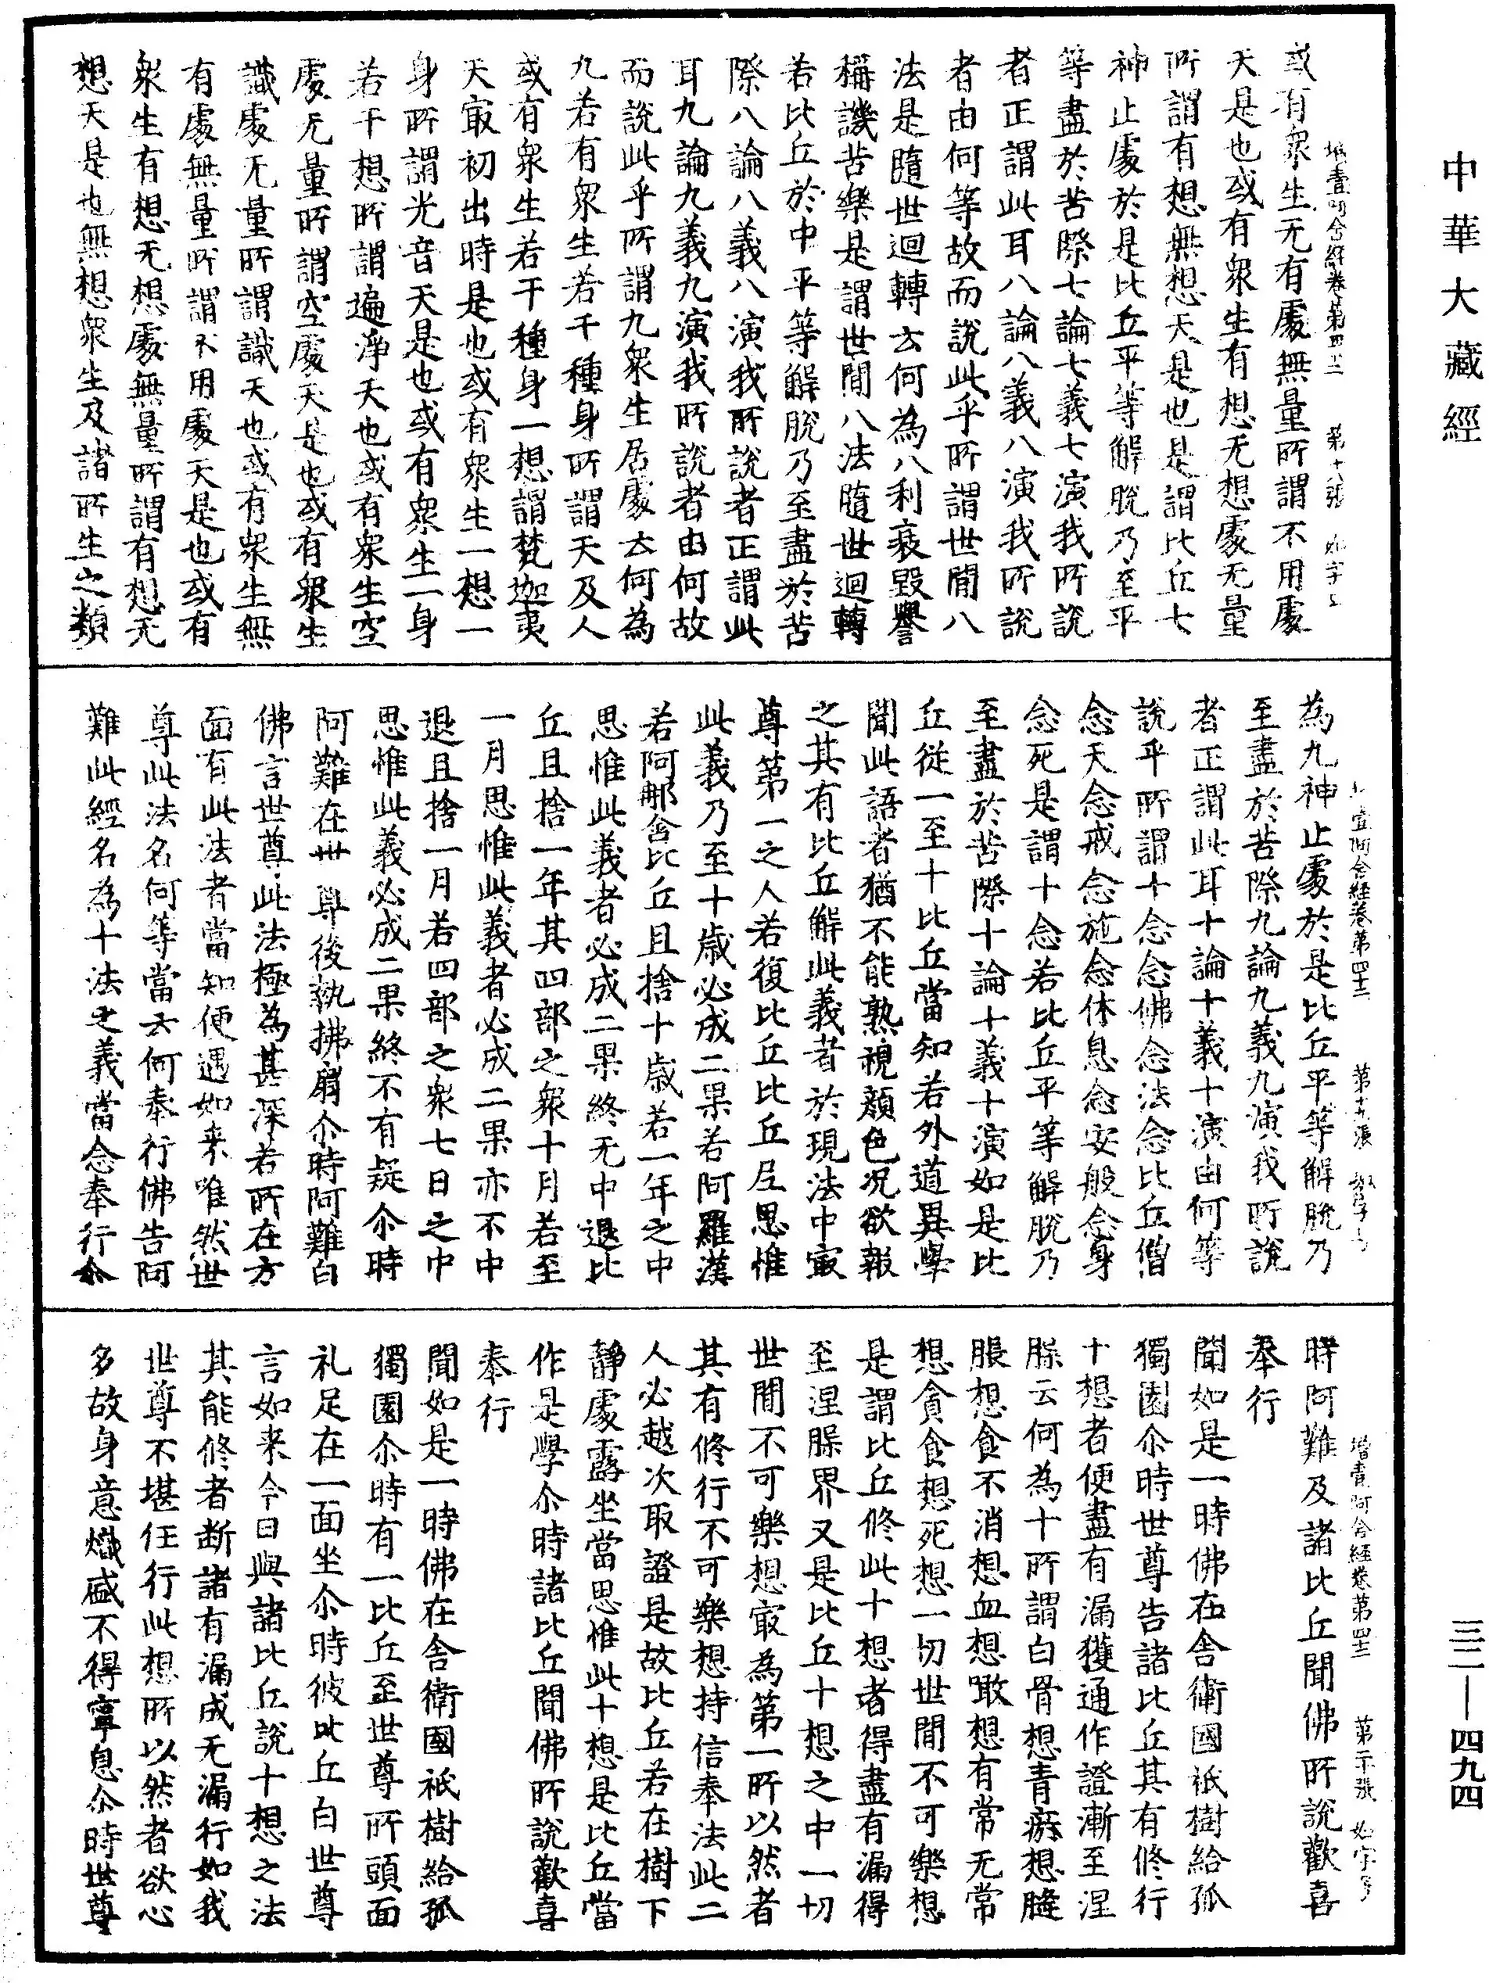 中華大藏經
三二—四九四
或有衆生无有處無量所謂不用處
天是也或有衆生有想无想處无量
所謂有想無想天是也是謂比丘七
神止處於是比丘平等解脫乃至平
等盡於苦際七論七義七演我所說
者正謂此耳八論八義八演我所說
者由何等故而說此乎所謂世間八
法是隨世迴轉云何為八利衰毀譽
稱譏苦樂是謂世間八法隨世迴轉
若比丘於中平等解脫乃至盡於苦
際八論八義八演我所說者正謂此
耳九論九義九演我所說者由何故
而說此乎所謂九衆生居處云何為
九若有衆生若干種身所謂天及人
或有衆生若干種身一想謂梵迦夷
天冣初出時是也或有衆生一想一
身所謂光音天是也或有衆生一身
若干想所謂遍淨天也或有衆生空
處无量所謂空處天是也或有衆生
識處无量所謂識天也或有衆生無
有處無量所謂不用處天是也或有
衆生有想无想處無量所謂有想无
想天是也無想衆生及諸所生之類
增壹阿含經卷第四十二　第十九張　如字号
為九神止處於是比丘平等解脫乃
至盡於苦際九論九義九演我所說
者正謂此耳十論十義十演由何等
說乎所謂十念念佛念法念比丘僧
念天念戒念施念休息念安般念身
念死是謂十念若比丘平等解脫乃
至盡於苦際十論十義十演如是比
丘從一至十比丘當知若外道異學
聞此語者猶不能熟視顏色况欲報
之其有比丘解此義者於現法中冣
尊第一之人若復比丘比丘尼思惟
此義乃至十歲必成二果若阿羅漢
若阿那含比丘且捨十歲若一年之中
思惟此義者必成二果終无中退比
丘且捨一年其四部之衆十月若至
一月思惟此義者必成二果亦不中
退且捨一月若四部之衆七日之中
思惟此義必成二果終不有疑尒時
阿難在世尊後執拂扇尒時阿難白
佛言世尊此法極為甚深若所在方
面有此法者當知便遇如来唯然世
尊此法名何等當云何奉行佛告阿
難此經名為十法之義當念奉行尒
增壹阿含經卷第四十二　第二十張　如字号
時阿難及諸比丘聞佛所說歡喜
奉行
聞如是一時佛在舍衛國祇樹給孤
獨園尒時世尊告諸比丘其有修行
十想者便盡有漏獲通作證漸至涅
槃云何為十所謂白骨想青瘀想膖
脹想食不消想血想噉想有常无常
想貪食想死想一切世間不可樂想
是謂比丘修此十想者得盡有漏得
至涅槃界又是比丘十想之中一切
世間不可樂想冣為第一所以然者
其有修行不可樂想持信奉法此二
人必越次取證是故比丘若在樹下
靜處露坐當思惟此十想是比丘當
作是學尒時諸比丘聞佛所說歡喜
奉行
聞如是一時佛在舍衛國祇樹給孤
獨園尒時有一比丘至世尊所頭面
礼足在一面坐尒時彼比丘白世尊
言如来今日與諸比丘說十想之法
其能修者斷諸有漏成无漏行如我
世尊不堪任行此想所以然者欲心
多故身意熾盛不得寧息尒時世尊